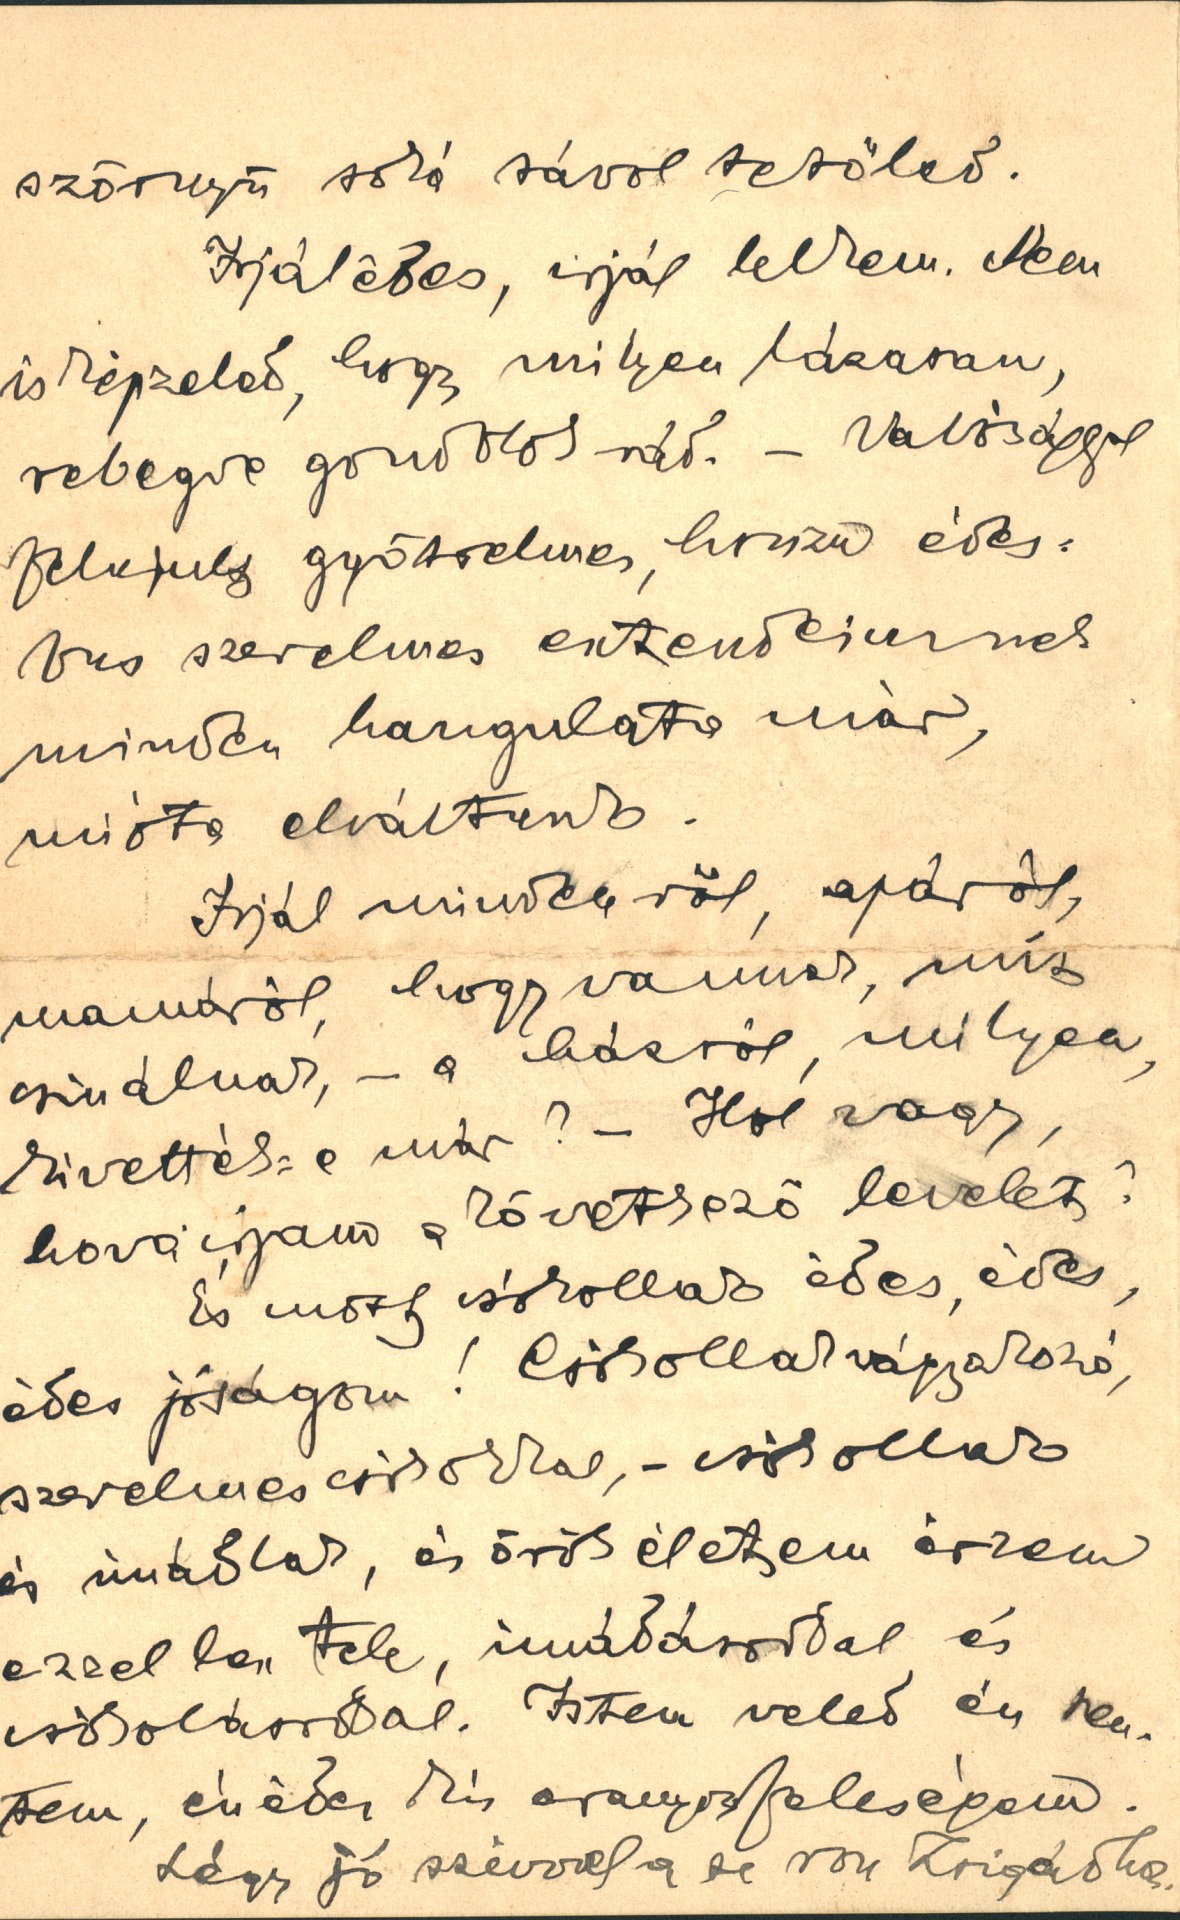 szörnyü soká távol tetöled.
Irjál édes, irjál lelkem. Nem
is képzeled, hogy milyen lázasan,
rebegve gondolok rád. – Valósággal
felujult gyötrelmes, hosszu édes-
bus szerelmes esztendeimnek
minden hangulata már,
mióta elváltunk.
Irjál mindenröl, apáról,
mamáról, hogy vannak, mit
csinálnak, – a házról, milyen,
kivették-e már? – Hol vagy,
hová irjam a következö levelet?
És most csókollak édes, édes,
édes jóságom! Csókollak vágyakozó,
szerelmes csókokkal, – csókollak
és imádlak, és örök életem érzem
ezzel lesz tele, imádásoddal és
csókolásoddal. Isten veled én szen-
tem, én édes kis aranyos feleségem.
Légy jó szivvel a te rossz Zsigádhoz.